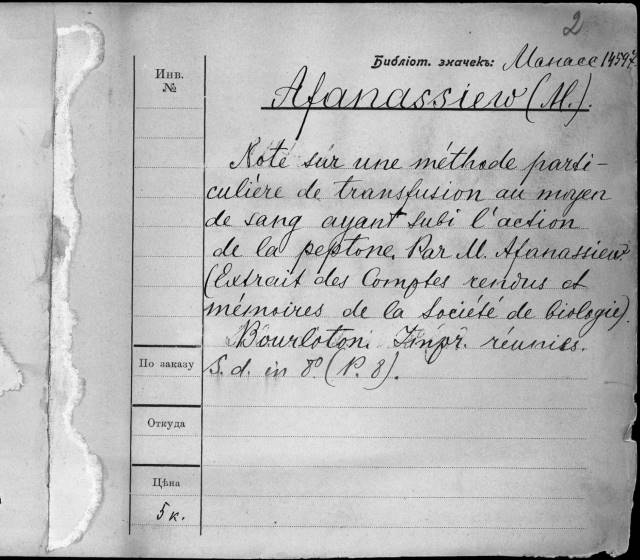 2
Библіот. значекъ: Манасс 14597
Инв.
№
Afanassiew (M.).
Note sur une méthode parti-
culière de transfusion au moyen
de sang ayant subi l'action
de la peptone. Par M. Afanassiew.
(Extrait des Comptes rendus et
mémoires de la Société de biologie).
Bourloton. Impr. réunies.
S. d. in 8º. (P. 8).
По заказу
Откуда
Цѣна
5 к.